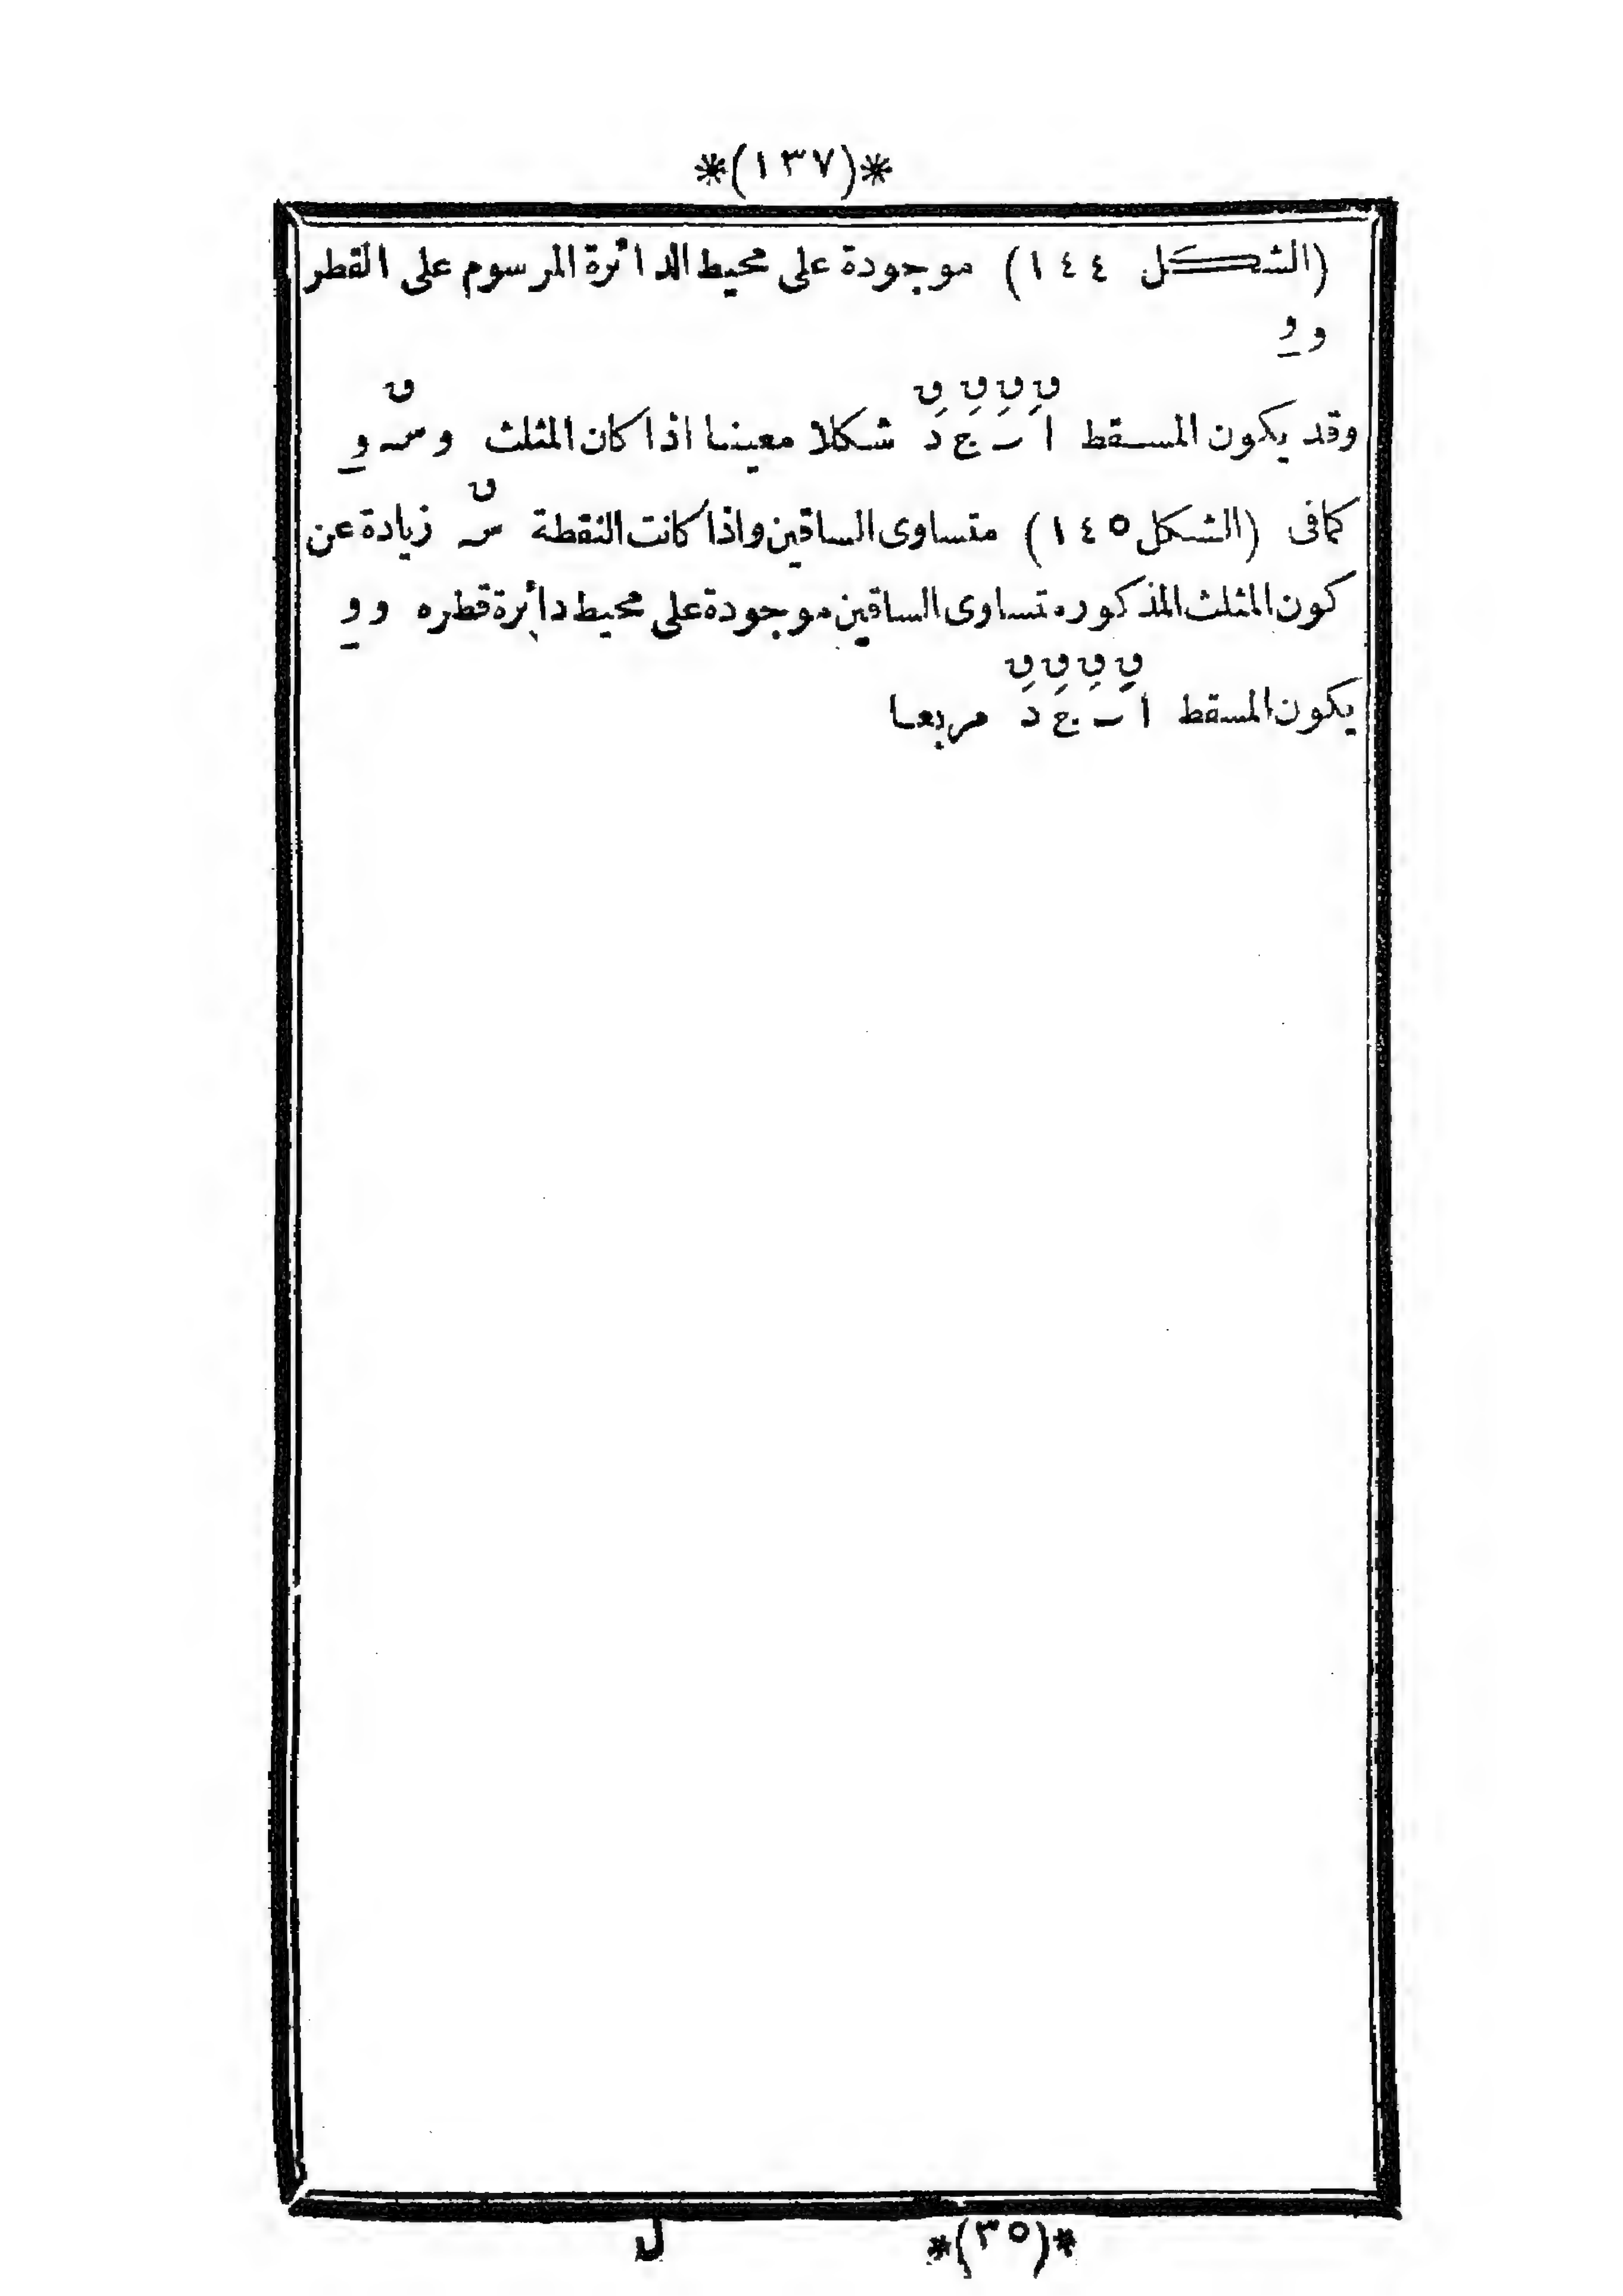 *(١٣٧)*
(الشكل ١٤٤) موجودة على محيط الدائرة المرسوم على القطر
و و
ق ق ق ق ق
وقد يكون المسقط ا ب ج د شكلا معينا اذا كان المثلث و س و
ق
كما فى (الشكل ١٤٥) متساوى الساقين واذا كانت النقطة س زيادة عن
كون المثلث المذكور متساوى الساقين موجودة على محيط دائرة قطره و و
ق ق ق ق
يكون المسقط ا ب ج د مربعا
*(٣٥)* ل